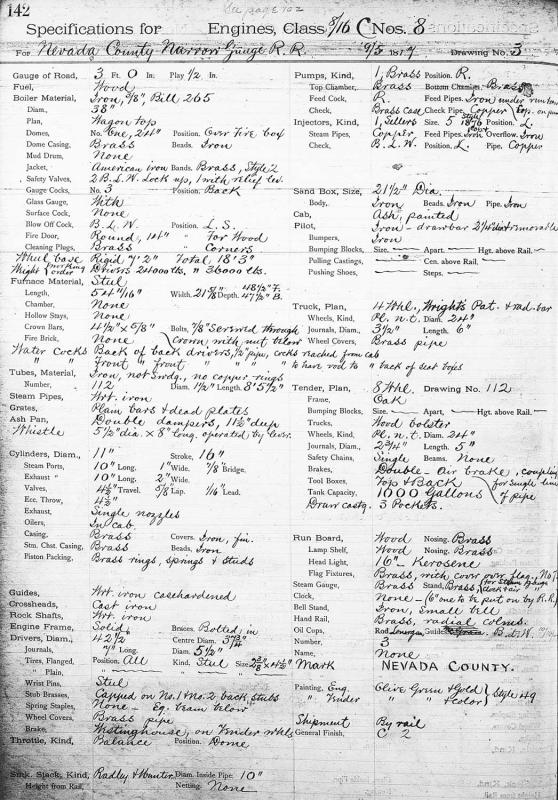 142
See page 202
Specifications for Engines, Class 8/16 C Nos. 8
For Nevada County Narrow Gauge R. R. 9/5 1877 Drawing No. 3
Gauge of Road, 3 Ft. 0 In. Play 1/2 In.
Fuel, Wood
Boiler Material, Iron, 3/8", Bill 265
Diam., 38"
Plan, Wagon top
Domes, No. One, 24" Position, Over Fire box
Dome Casing, Brass Beads, Iron
Mud Drum, None
Jacket, American iron Bands, Brass, Style 2
Safety Valves, 2 B.L.W. Lock up, 1 with relief lev.
Gauge Cocks, No. 3 Position, Back
Glass Gauge, With
Surface Cock, None
Blow Off Cock, B.L.W. Position, L.S.
Fire Door, Round, 14" " For Wood
Cleaning Plugs, Brass " Corners
Wheel base Rigid 7' 2" Total 18' 3"
Weight working order Drivers 24000 lbs, " 36000 lbs.
Furnace Material, Steel
Length, 54 11/16" Width, 21 5/8" Depth, 48 1/2" F. 47 1/2" B.
Chamber, None
Hollow Stays, None
Crown Bars, 4 1/2" x 5/8" Bolts, 7/8" Screwed through
Fire Brick, None crown, with nut below
Water Cocks Back of back drivers, 1/2" pipe, cocks reached from cab
" " Front " front " " " to have rod to " back of seat boxes
Tubes, Material, Iron, not swdg. no copper rings
Number, 112 Diam. 1 1/2" Length. 8' 5 1/2"
Steam Pipes, Wrt. iron
Grates, Plain bars & dead plates
Ash Pan, Double dampers, 11 1/2" deep
Whistle 5 1/2" dia. x 8" long. operated by levr.
Cylinders, Diam., 11" Stroke, 16"
Steam Ports, 10" Long. 1" Wide. 7/8" Bridge.
Exhaust " 10" Long. 2" Wide.
Valves, 4 1/2" Travel. 5/8" Lap. 1/16" Lead.
Ecc. Throw, 4 1/2"
Exhaust, Single nozzles
Oilers, In cab.
Casing, Brass Covers. Iron, fin.
Stm. Chst. Casing, Brass Beads, Iron
Piston Packing, Brass rings, springs & studs
Guides, Wrt. iron casehardened
Crossheads, Cast iron
Rock Shafts, Wrt. iron
Engine Frame, Solid Braces. Bolted in
Drivers, Diam., 42 1/2 Centre Diam. 37 3/4
Journals, 7" Long. Diam. 5 1/2"
Tires, Flanged, Position, All Kind. Steel Size, 2 3/8 x 4 1/2"
" Plain, " "
Wrist Pins, Steel
Stub Brasses, Capped on No. 1 & No. 2 back stubs
Spring Staples, None - Eq. beam below
Wheel Covers, Brass pipe
Brake, Westinghouse, on Tender whls
Throttle, Kind, Balance Position, Dome
Smk. Stack, Kind, Radley & Hunter. Diam. Inside Pipe: 10"
Height from Rail, Netting, None
Pumps, Kind, 1, Brass Position. R.
Top Chamber, Brass Bottom Chamber. Brass
Feed Cock, R. Feed Pipes. Iron under run bds
Check, Brass Cast, Check Pipe, Copper
Injectors, Kind, 1, Sellers Size. 5 Style 1876 Position. L.
Steam Pipes, Copper Feed Pipes. Iron Overflow. Iron
Check, B.L.W. Position, L. Pipe, Copper
Sand Box, Size, 21 1/2" Dia.
Body, Iron Beads. Iron Pipe. Iron
Cab, Ash, painted
Pilot, Iron - drawbar
Bumpers, Iron
Bumping Blocks, Size. — Apart. — Hgt. above Rail. —
Pulling Castings, — Cen. above Rail. —
Pushing Shoes, — Steps. —
Truck, Plan, 4 Whl., Wright's Pat. & rad-bar
Wheels, Kind, Pl. n.t. Diam. 24"
Journals, Diam., 3 1/2" Length. 6"
Wheel Covers, Brass pipe
Tender, Plan, 8 Whl. Drawing No. 112
Frame, Oak
Bumping Blocks, Size. — Apart, — Hgt. above Rail.—
Trucks, Wood bolster
Wheels, Kind, Pl. n.t. Diam. 24"
Journals, Diam., 2 3/4" Length. 5"
Safety Chains, Single Beams. None
Brakes, Double - Air brake, coupling for single line of pipe
Tool Boxes, Top & Back
Tank Capacity, 1000 Gallons
Draw castg. 3 Pockets.
Run Board, Wood Nosing. Brass
Lamp Shelf, Wood Nosing. Brass
Head Light, 16" - Kerosene
Flag Fixtures, Brass, with cover over flag, No 7
Steam Gauge, Brass Stand, Brass
Clock, None - (6" one to be put on by R.R.)
Bell Stand, Iron, small bell
Hand Rail, Brass, radial colmns.
Oil Cups, Rod Guides B.L.W.
Number, 3
Name, None
Mark NEVADA COUNTY.
Painting, Eng. Olive Green & Gold Style 49
" Tender " " & color
Shipment By rail
General Finish, C 2